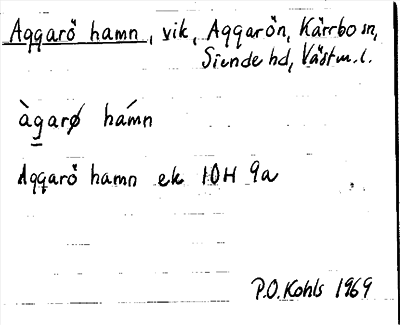 Aggarö hamn, vik, Aggarön, Kärrbo sn,
Siende hd, Västm. l.
àgarø hámn
Aggarö hamn ek 10H 9a
P.O. Kohls 1969